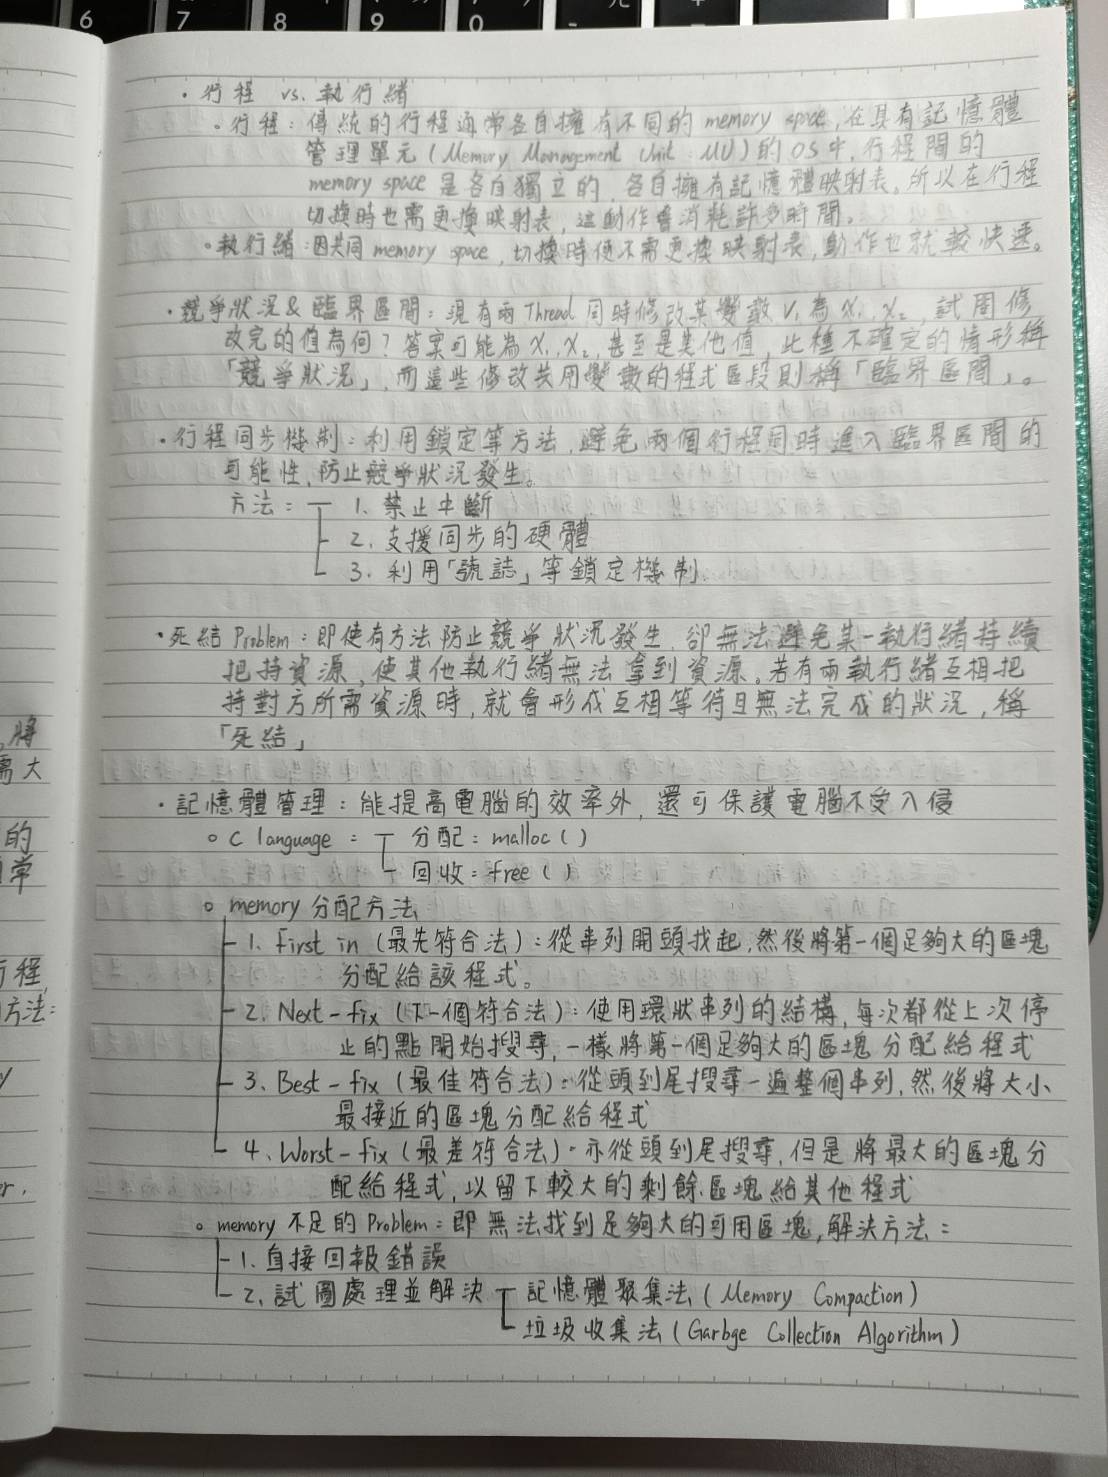 6 7 8 9 0
・行程 vs. 執行緒
・行程：傳統的行程通常各自擁有不同的 memory space, 在具有記憶體
管理單元 (Memory Management Unit : MU) 的 OS 中, 行程間的
memory space 是各自獨立的, 各自擁有記憶體映射表。所以在行程
切換時也需更換映射表, 這動作會消耗許多時間。
・執行緒：因共同 memory space, 切換時便不需更換映射表, 動作也就較快速。
・競爭狀況 & 臨界區間：現有兩 Thread 同時修改某變數 V, 為 X₁, X₂, 試問修
改完的值為何？答案可能為 X₁, X₂, 甚至是其他值, 此種不確定的情形稱
「競爭狀況」, 而這些修改共用變數的程式區段則稱「臨界區間」。
・行程同步機制：利用鎖定等方法, 避免兩個行程同時進入臨界區間的
可能性, 防止競爭狀況發生。
方法： 1. 禁止中斷
2. 支援同步的硬體
3. 利用「號誌」等鎖定機制.
・死結 Problem：即使有方法防止競爭狀況發生, 卻無法避免某一執行緒持續
把持資源, 使其他執行緒無法拿到資源。若有兩執行緒互相把
持對方所需資源時, 就會形成互相等待且無法完成的狀況, 稱
「死結」
・記憶體管理：能提高電腦的效率外, 還可保護電腦不受入侵
○ C language： 分配：malloc ( )
回收：free ( )
○ memory 分配方法
1. First in (最先符合法)：從串列開頭找起, 然後將第一個足夠大的區塊
分配給該程式。
2. Next-fix (下一個符合法)：使用環狀串列的結構, 每次都從上次停
止的點開始搜尋, 一樣將第一個足夠大的區塊分配給程式
3. Best-fix (最佳符合法)：從頭到尾搜尋一遍整個串列, 然後將大小
最接近的區塊分配給程式
4. Worst-fix (最差符合法)：亦從頭到尾搜尋, 但是將最大的區塊分
配給程式, 以留下較大的剩餘區塊給其他程式
○ memory 不足的 Problem：即無法找到足夠大的可用區塊, 解決方法：
1. 直接回報錯誤
2. 試圖處理並解決 記憶體聚集法 (Memory Compaction)
垃圾收集法 (Garbge Collection Algorithm)
將
需大
的
常
行程,
方法：
y
er.